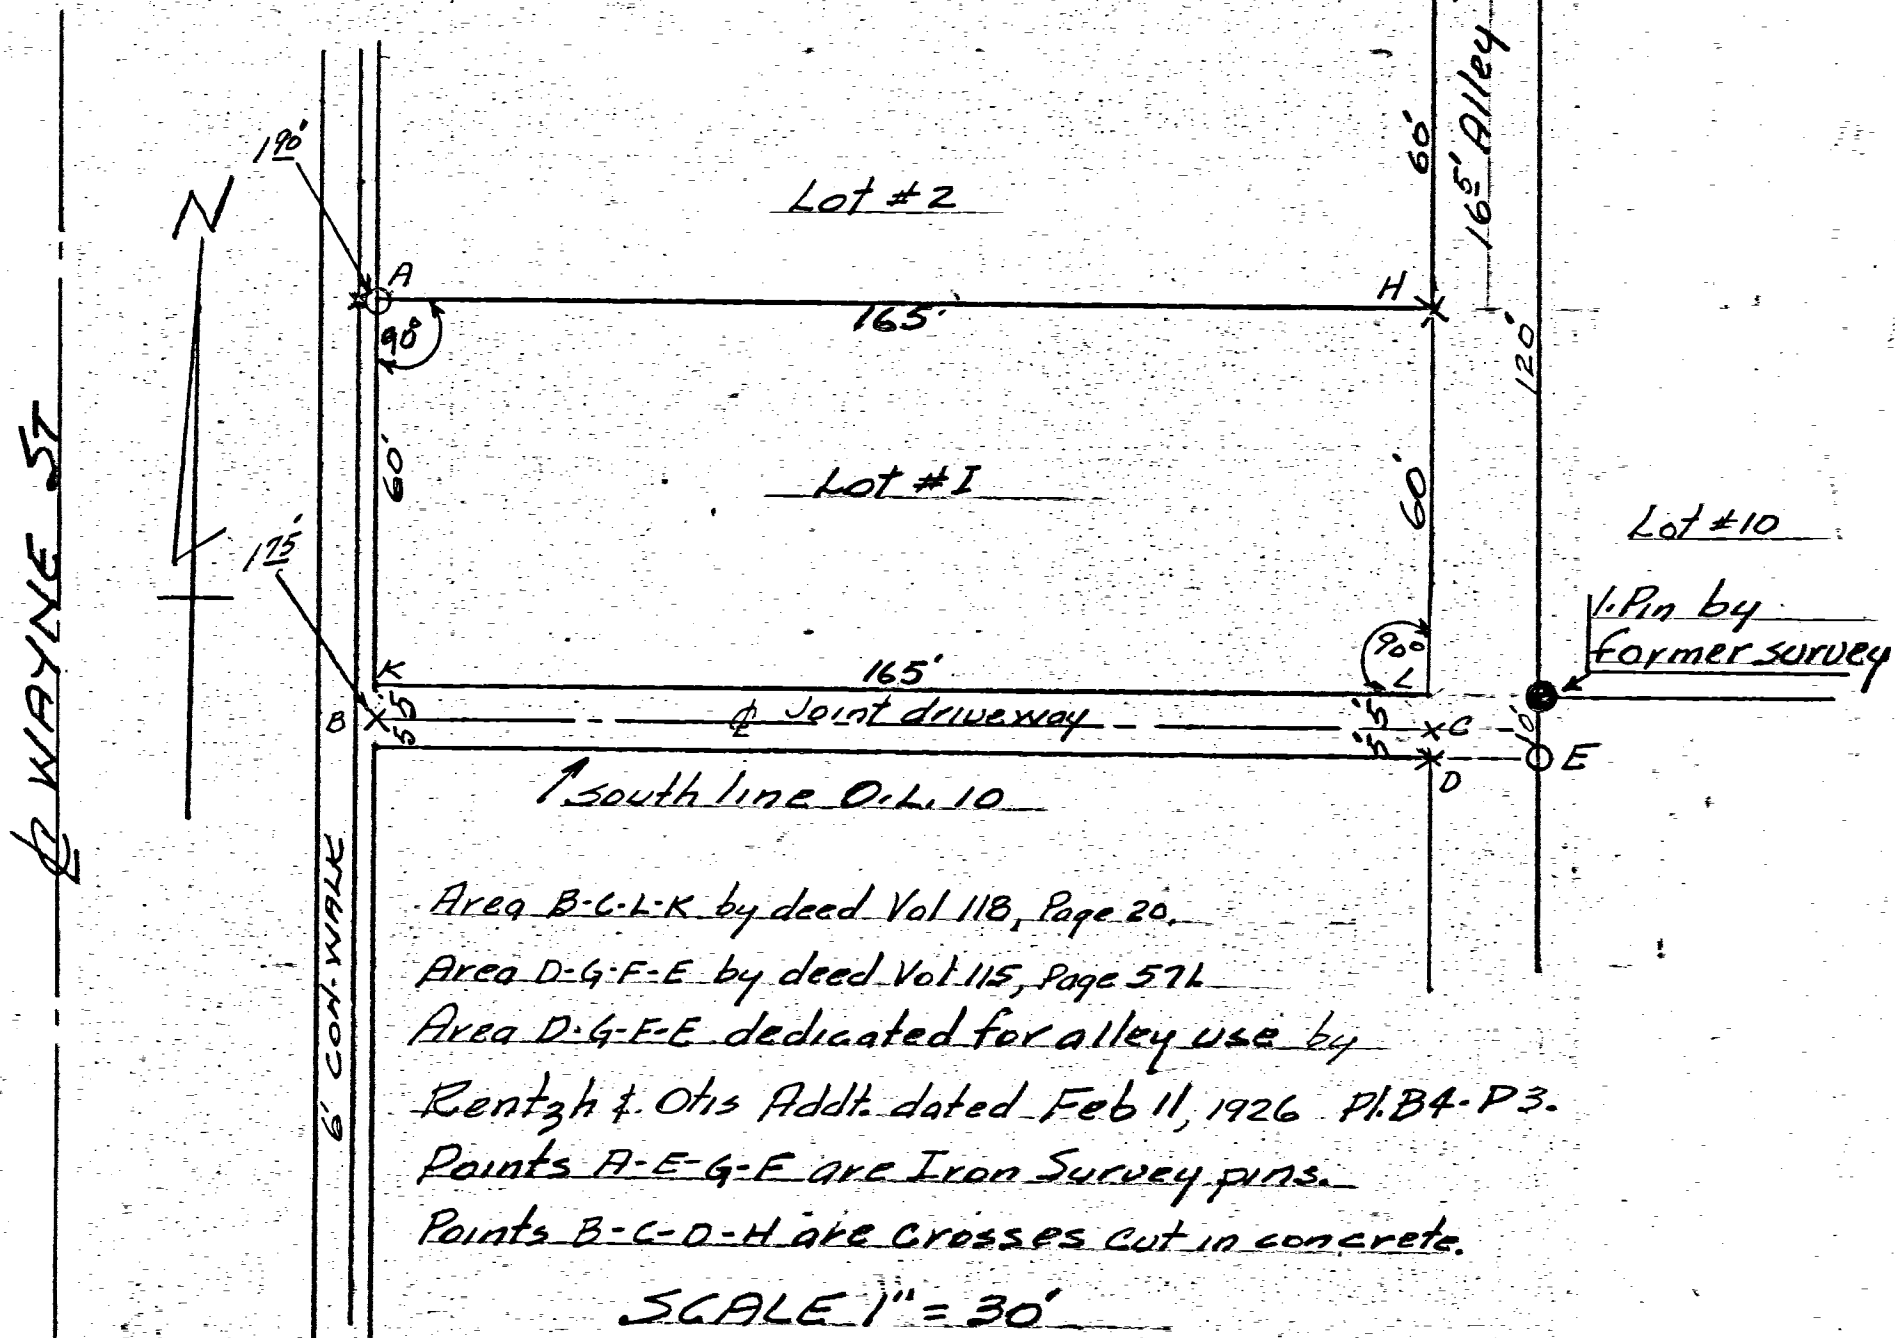 16 5' Alley
60'
1 90'
Lot #2
A
H
165'
90°
120'
60'
Lot #I
60'
Lot #10
℄ WAYNE ST
N
1 75'
1. Pin by
former survey
90°
K
165'
L
B
5'
5'
℄ Joint driveway
5'
5'
C
10'
D
E
South line O.L. 10
6' CON. WALK
Area B-C-L-K by deed Vol 118, Page 20.
Area D-G-F-E by deed Vol 115, Page
Area D-G-F-E dedicated for alley use by
& Otis Addt. dated Feb 11, 1926 Pl.B4-P3.
Points A-E-G-F are Iron Survey pins.
Points B-C-D-H are Crosses cut in concrete.
SCALE 1" = 30'